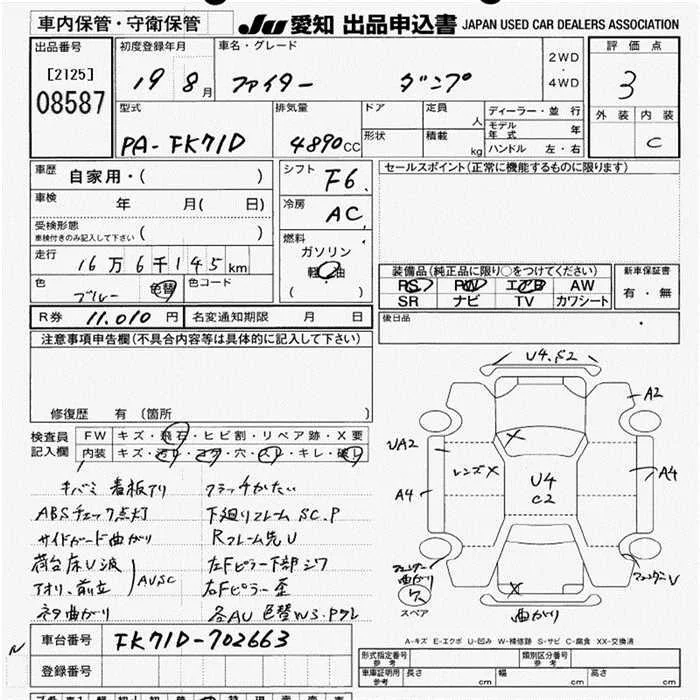 車内保管・守衛保管 JU 愛知 出品申込書 JAPAN USED CAR DEALERS ASSOCIATION
出品番号 初度登録年月 車名・グレード 2WD・4WD 評価点
[2125] 19 8月 ファイター ダンプ 3
08587 型式 排気量 ドア 定員 人 ディーラー・並 行 外装 内装
PA-FK71D 4890CC 形状 積載 kg モデル年式 年 C
ハンドル 左・右
車歴 自家用・( ) シフト F6 セールスポイント(正常に機能するものに限ります)
車検 年 月( 日) 冷房 AC
受検形態 ( )
車検付きのみ記入して下さい
燃料 ガソリン
軽・油
( )
走行 16万6千145km
色 ブルー 色替 色コード
装備品(純正品に限り○をつけてください) 新車保証書
PS PW エアB AW 有・無
SR ナビ TV カワシート
R券 11,010円 名変通知期限 月 日 後日品
注意事項申告欄(不具合内容等は具体的に記入して下さい)
修復歴 有 (箇所 )
検査員記入欄 FW キズ・飛石・ヒビ割・リペア跡・X要
内装 キズ・汚レ・コゲ・穴・スレ・キレ・破レ
キバミ 看板アリ クラッチかたい
ABSチェック点灯 下廻りフレーム SC.P
サイドガード曲がり Rフレーム先U
荷台床U波 左Fピラー下部シワ
アオリ、前立 AUSC 右Fピラー歪
ネタ曲がり 各AU 色替WS.Pクレ
U4.S2
A2
UA2
レンズX
U4
C2
A4
A4
フェンダー曲がり
フェンダーU
スペア
曲がり
A-キズ E-エクボ U-凹み W-補修跡 S-サビ C-腐食 XX-交換済
車台番号 FK71D-702663
登録番号
形式指定番号 参考 類別区分番号 参考
車庫証明用 参考 長さ cm 幅 cm 高さ cm